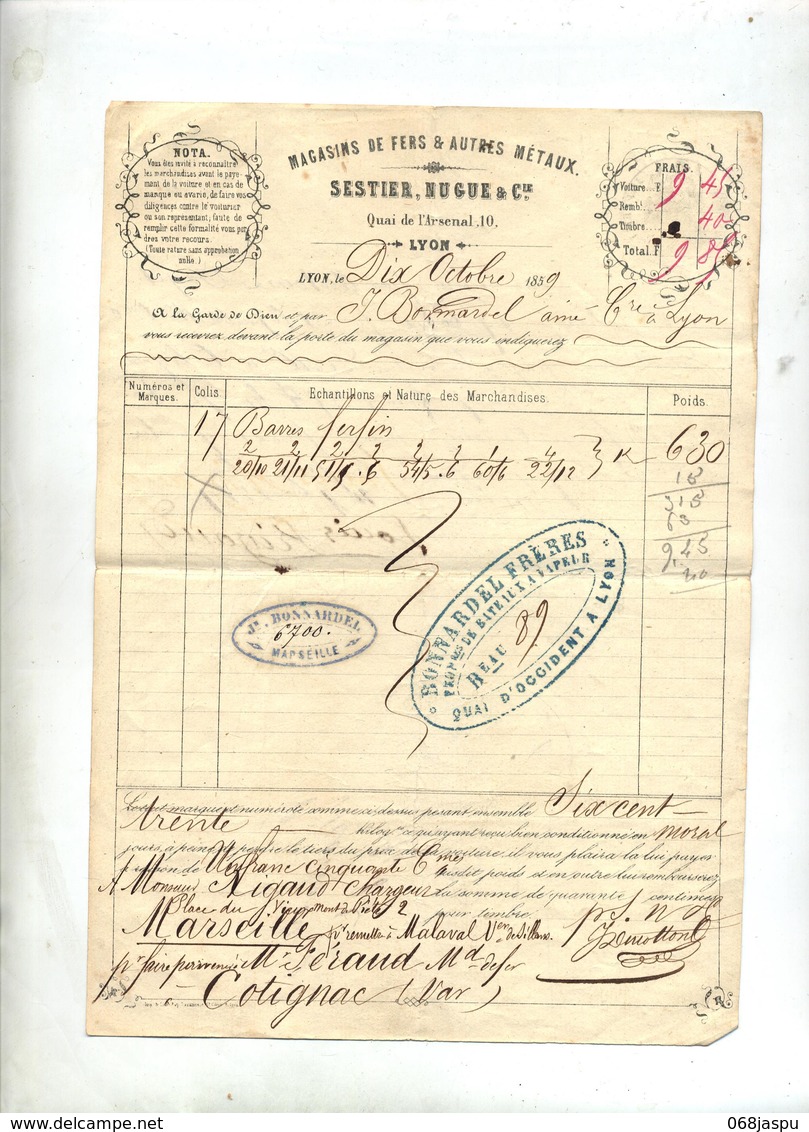 NOTA.
Vous êtes invité à reconnaître
les marchandises avant le paye-
ment de la voiture et en cas de
manque ou avarie, de faire vos
diligences contre le voiturier
ou son représentant, faute de
remplir cette formalité vous per-
drez votre recours.
(Toute rature sans approbation
nulle.)
MAGASINS DE FERS & AUTRES MÉTAUX.
SESTIER, NUGUE & CIE
Quai de l'Arsenal, 10,
LYON
FRAIS.
Voiture... F 9 45
Rembt
Timbre... 40
Total. F 9 85
LYON, le Dix Octobre 1859
A la Garde de Dieu et par J. Bonnardel ainé Cre à Lyon
vous recevrez devant la porte du magasin que vous indiquerez
Numéros et Marques. Colis. Echantillons et Nature des Marchandises. Poids.
17 Barres fer fin K 630
2 2 2 2 2 2 1 4
20/10 21/11 51/9 .6 54/5 .6 60/6 22/12
15
315
63
9,45
40
BONNARDEL FRÈRES
PROPRES DE BATEAUX A VAPEUR
BEAU 89
QUAI D'OCCIDENT A LYON
JH. BONNARDEL
6700.
MARSEILLE
Le tout marqué et numéroté comme ci-dessus pesant ensemble Six cent
trente kilog. ce qu'ayant reçu bien conditionné en
jours à peine de perdre le tiers du prix de la voiture, il vous plaira lui payer
à raison de Un franc Cinquante Cmes susdit poids et en outre lui rembourserez
la somme de quarante centimes
pour timbre.
A Monsieur Rigaud Chargeur
Place du 2
Marseille pr remettre à Malaval Ver de Sillans.
pr faire parvenir à Mr Féraud Md de fer
Cotignac (Var)
068jaspu